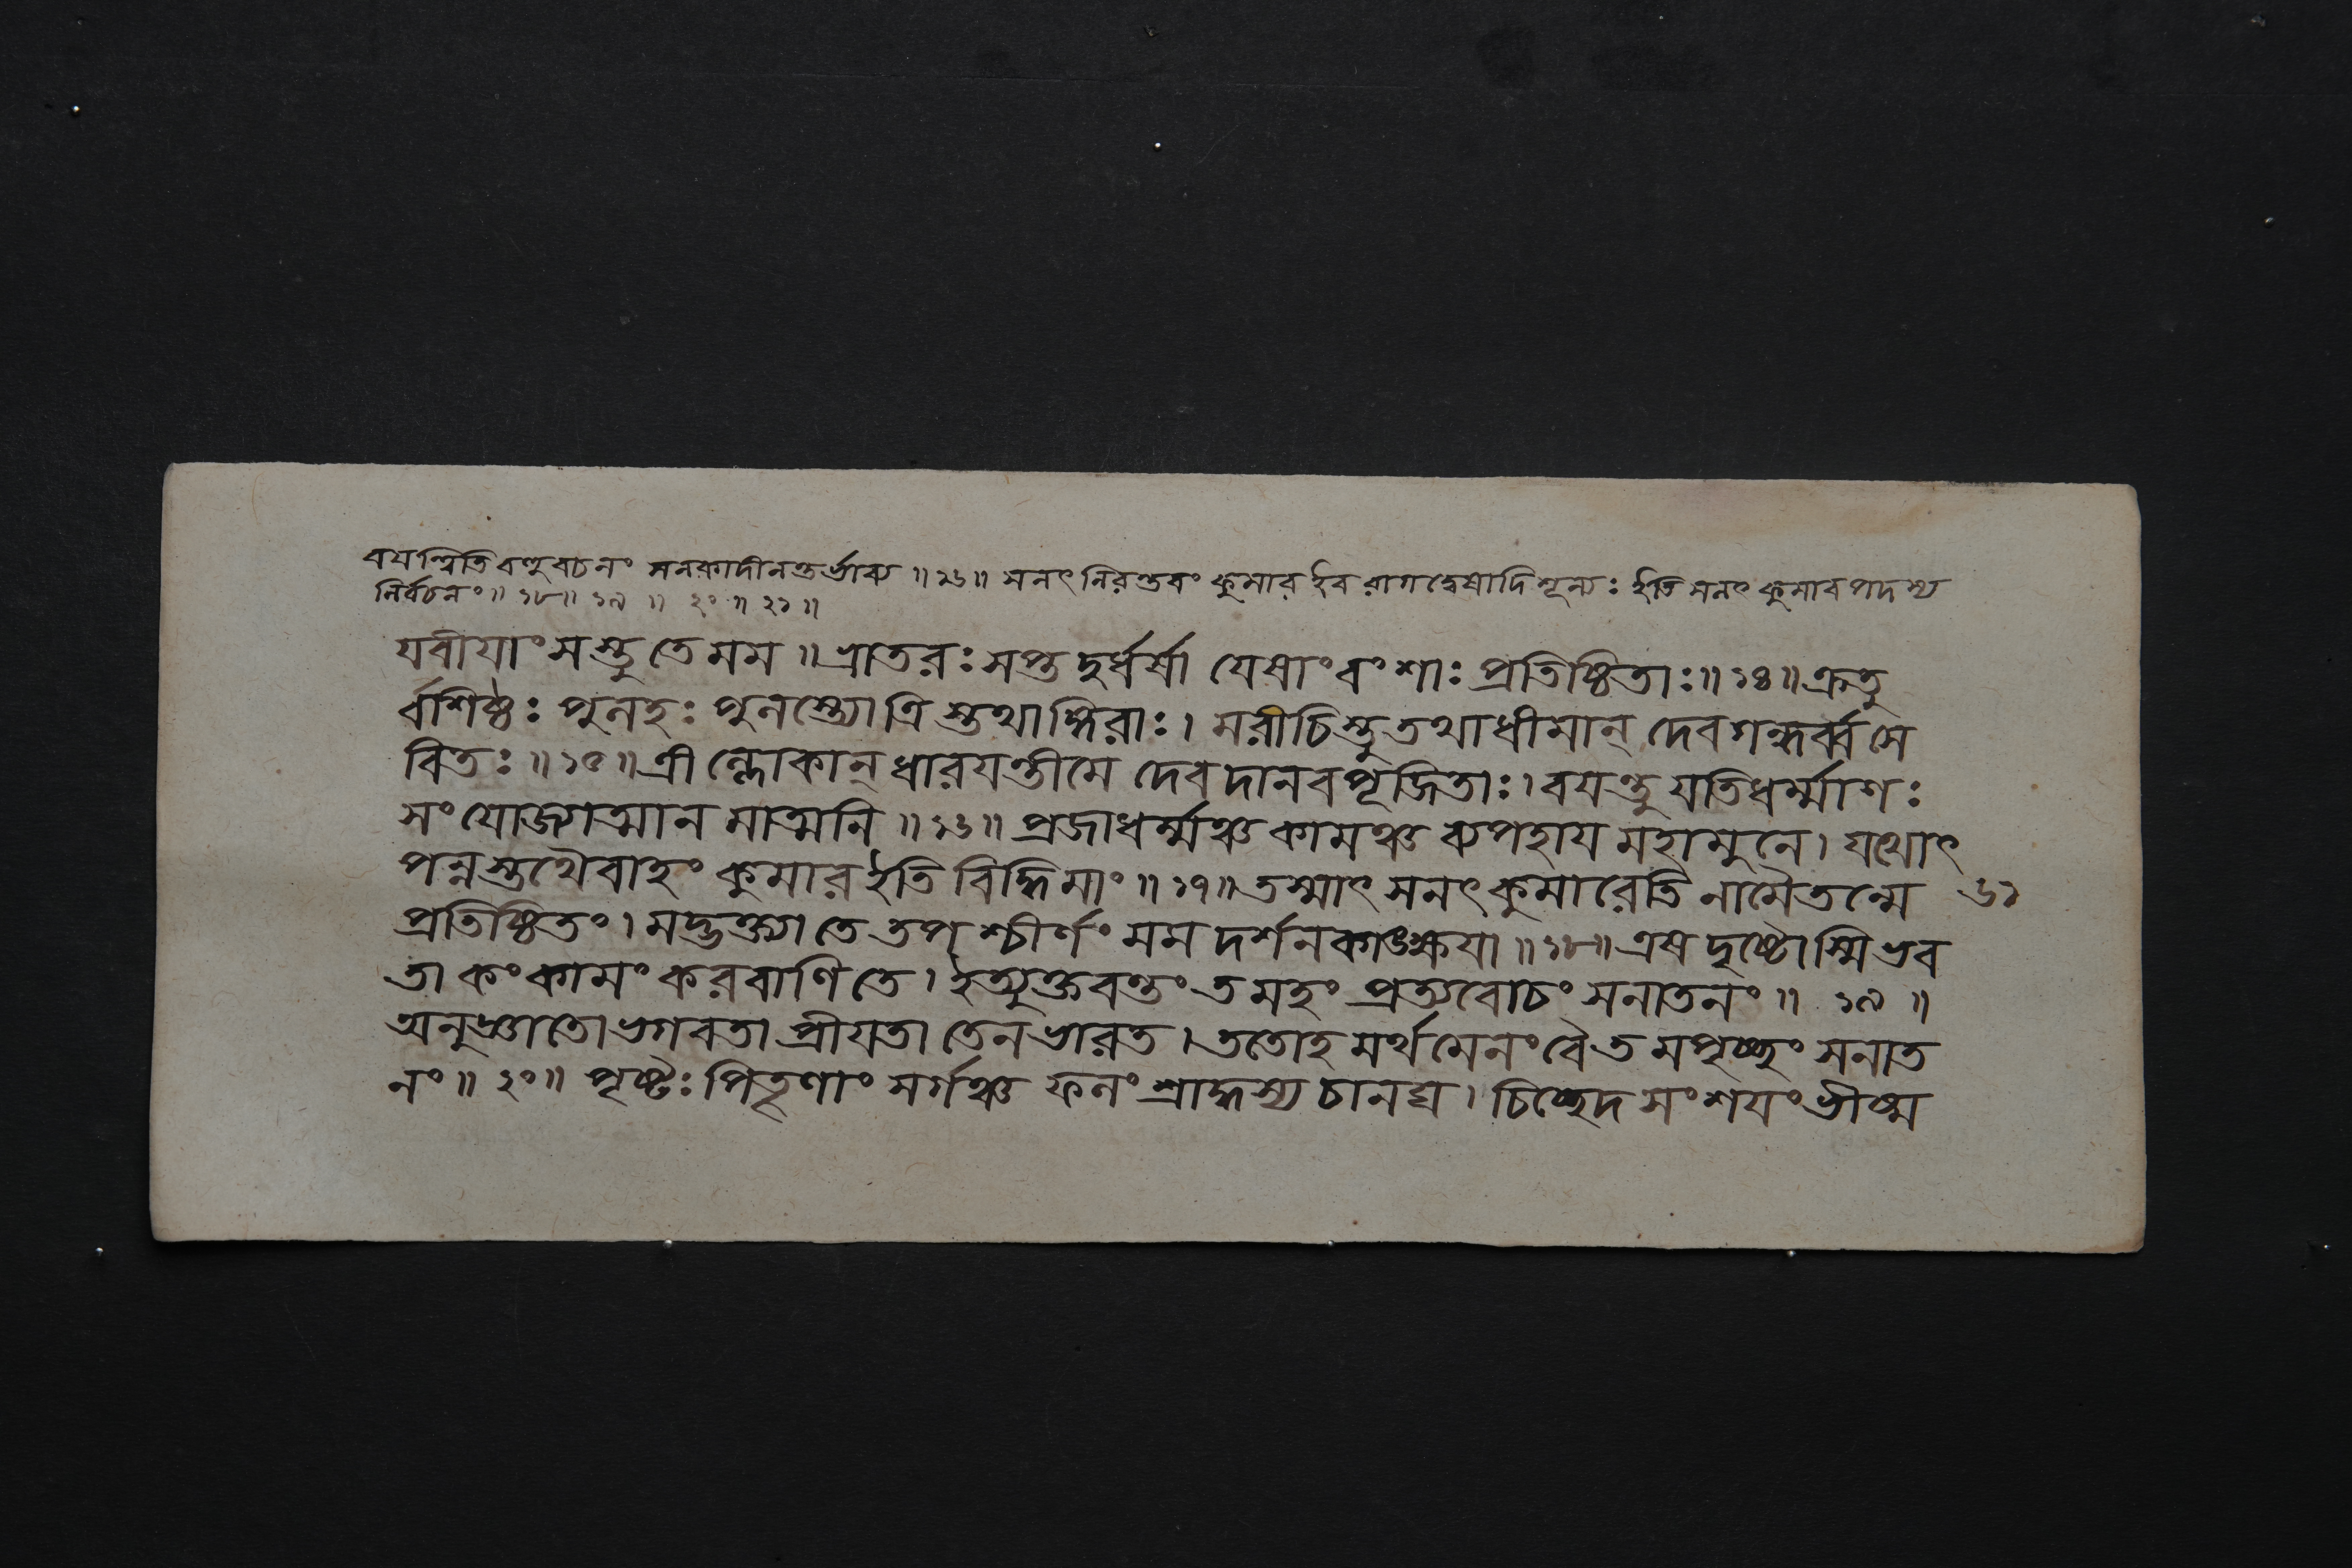 বয়ন্ত্বিতি বহুবচনং সনকাদীনন্তর্ভাব্য ॥ ১৬ ॥ সনৎ নিরন্তরং কুমার ইব রাগদ্বেষাদিশূন্যঃ ইতি সনৎকুমারপদস্য
নির্বচনং ॥ ১৮ ॥ ১৯ ॥ ২০ ॥ ২১ ॥
যবীয়াংসস্তু তে মম ॥ ভ্রাতরঃ সপ্ত দুর্ধর্ষা যেষাং বংশাঃ প্রতিষ্ঠিতাঃ ॥ ১৪ ॥ ক্রতু
র্বশিষ্ঠঃ পুলহঃ পুলস্ত্যোত্রিস্তথাঙ্গিরাঃ । মরীচিস্তু তথা ধীমান্ দেবগন্ধর্ব্বসে
বিতঃ ॥ ১৫ ॥ ত্রীল্লোকান্ ধারয়ন্তীমে দেবদানবপূজিতাঃ । বয়ন্তু যতিধর্ম্মাণঃ
সংযোজ্যাত্মানমাত্মনি ॥ ১৬ ॥ প্রজাধর্ম্মঞ্চ কামঞ্চ ব্যপহায় মহামুনে । যথোৎ
পন্নস্তথৈবাহং কুমার ইতি বিদ্ধি মাং ॥ ১৭ ॥ তস্মাৎ সনৎকুমারেতি নামৈতন্মে ৬১
প্রতিষ্ঠিতং । মদ্ভক্ত্যা তে তপশ্চীর্ণং মম দর্শনকাঙ্ক্ষয়া ॥ ১৮ ॥ এষ দৃষ্টোস্মি ভব
তা কং কামং করবাণি তে । ইত্যুক্তবন্তং তমহং প্রত্যবোচং সনাতনং ॥ ১৯ ॥
অনুজ্ঞাতো ভগবতা প্রীয়তা তেন ভারত । ততোহমর্থমেনং বৈ তমপৃচ্ছং সনাত
নং ॥ ২০ ॥ পৃষ্টঃ পিতৄণাং সর্গঞ্চ ফলং শ্রাদ্ধস্য চানঘ । চিচ্ছেদ সংশয়ং ভীষ্ম